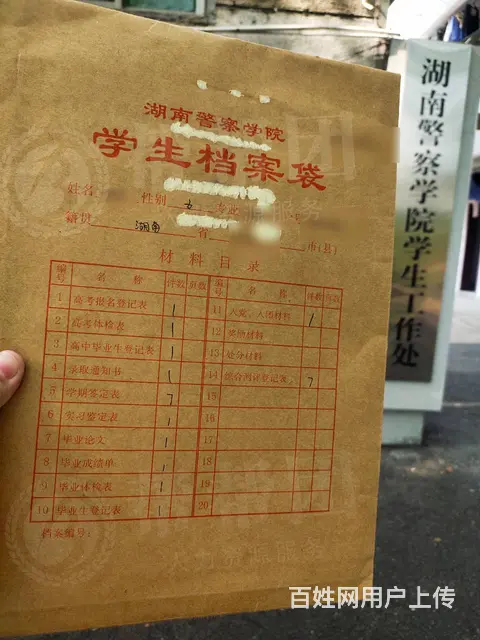 湖南警察学院
学生档案袋
姓名 性别 女 专业
籍贯 湖南 省 市(县)
材料目录
编号 名称 件数 页数 编号 名称 件数 页数
1 高考报名登记表 1 11 入党、入团材料 1
2 高考体检表 1 12 奖惩材料
3 高中毕业生登记表 1 13 处分材料
4 录取通知书 1 14 综合测评登记表 7
5 学期鉴定表 7 15
6 实习鉴定表 1 16
7 毕业论文 1 17
8 毕业成绩单 1 18
9 毕业体检表 1 19
10 毕业生登记表 1 20
档案编号:
湖南警察学院学生工作处
百姓网用户上传